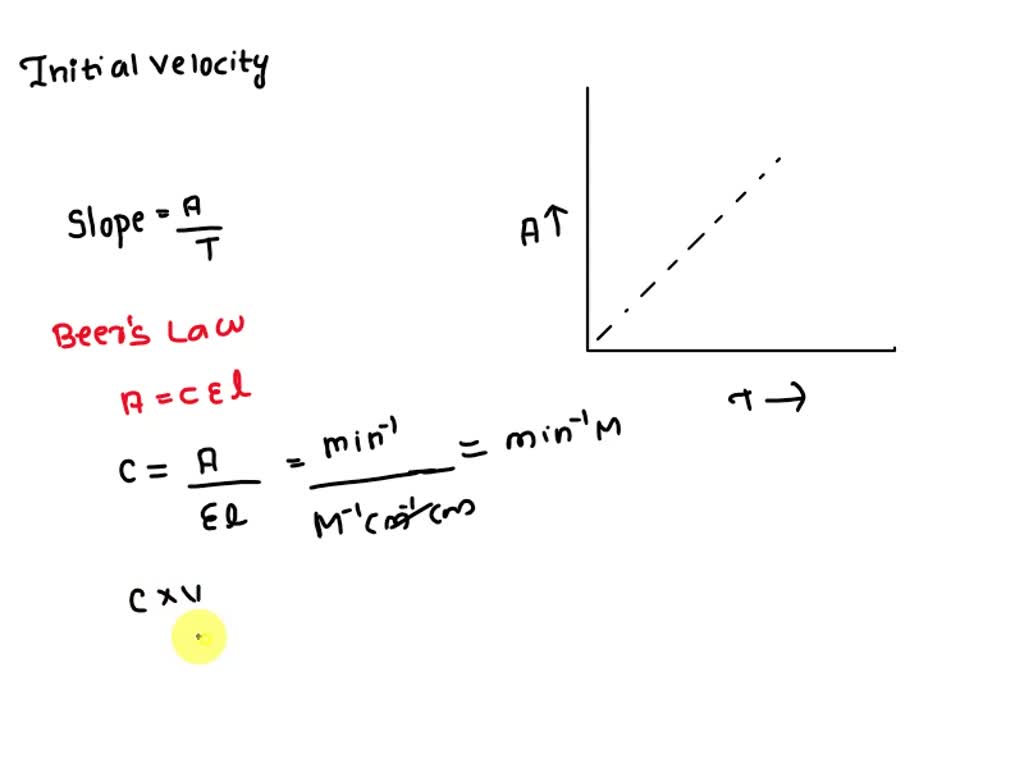 Initial velocity
Slope = A / T
A↑
Beer's Law
A = C ε l
T →
C = A / εl = min⁻¹ / M⁻¹ cm⁻¹ cm = min⁻¹ M
C × V